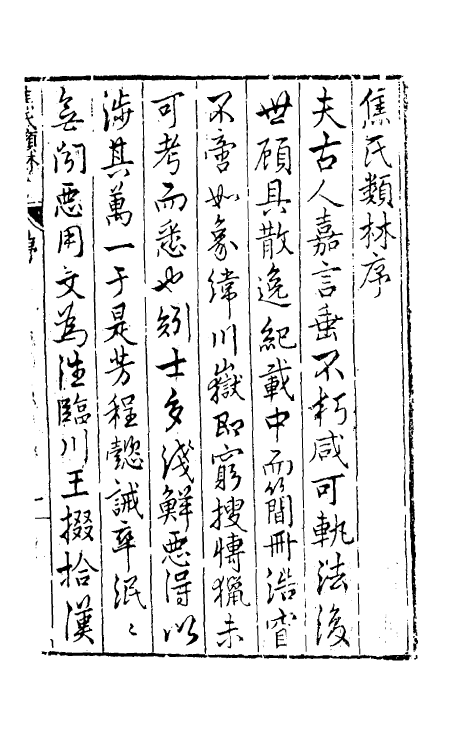 焦氏類林序
夫古人嘉言垂不朽咸可執法後
世顧具散逸紀載中而簡冊浩
不啻如象緯川嶽即窮搜博獵未
可考而悉也矧士多淺鮮惡得以
涉其萬一于是芳程懿誡率泯〻
無聞惡用文為往臨川王掇拾漢
焦氏類林
序
一